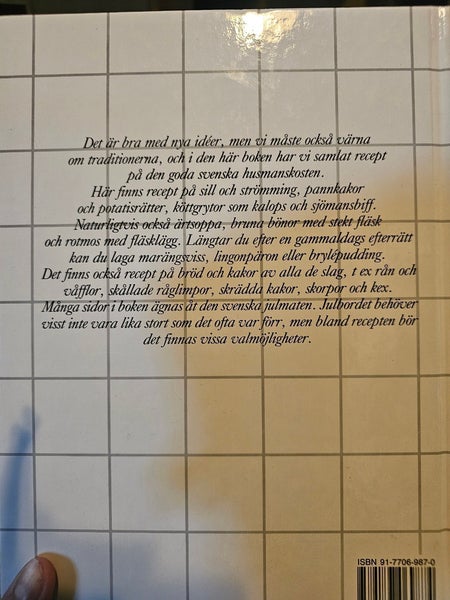 Det är bra med nya idéer, men vi måste också värna
om traditionerna, och i den här boken har vi samlat recept
på den goda svenska husmanskosten.
Här finns recept på sill och strömming, pannkakor
och potatisrätter, köttgrytor som kalops och sjömansbiff.
Naturligtvis också ärtsoppa, bruna bönor med stekt fläsk
och rotmos med fläsklägg. Längtar du efter en gammaldags efterrätt
kan du laga marängsviss, lingonpäron eller brylépudding.
Det finns också recept på bröd och kakor av alla de slag, t ex rån och
våfflor, skållade råglimpor, skrädda kakor, skorpor och kex.
Många sidor i boken ägnas åt den svenska julmaten. Julbordet behöver
visst inte vara lika stort som det ofta var förr, men bland recepten bör
det finnas vissa valmöjligheter.
ISBN 91-7706-987-0